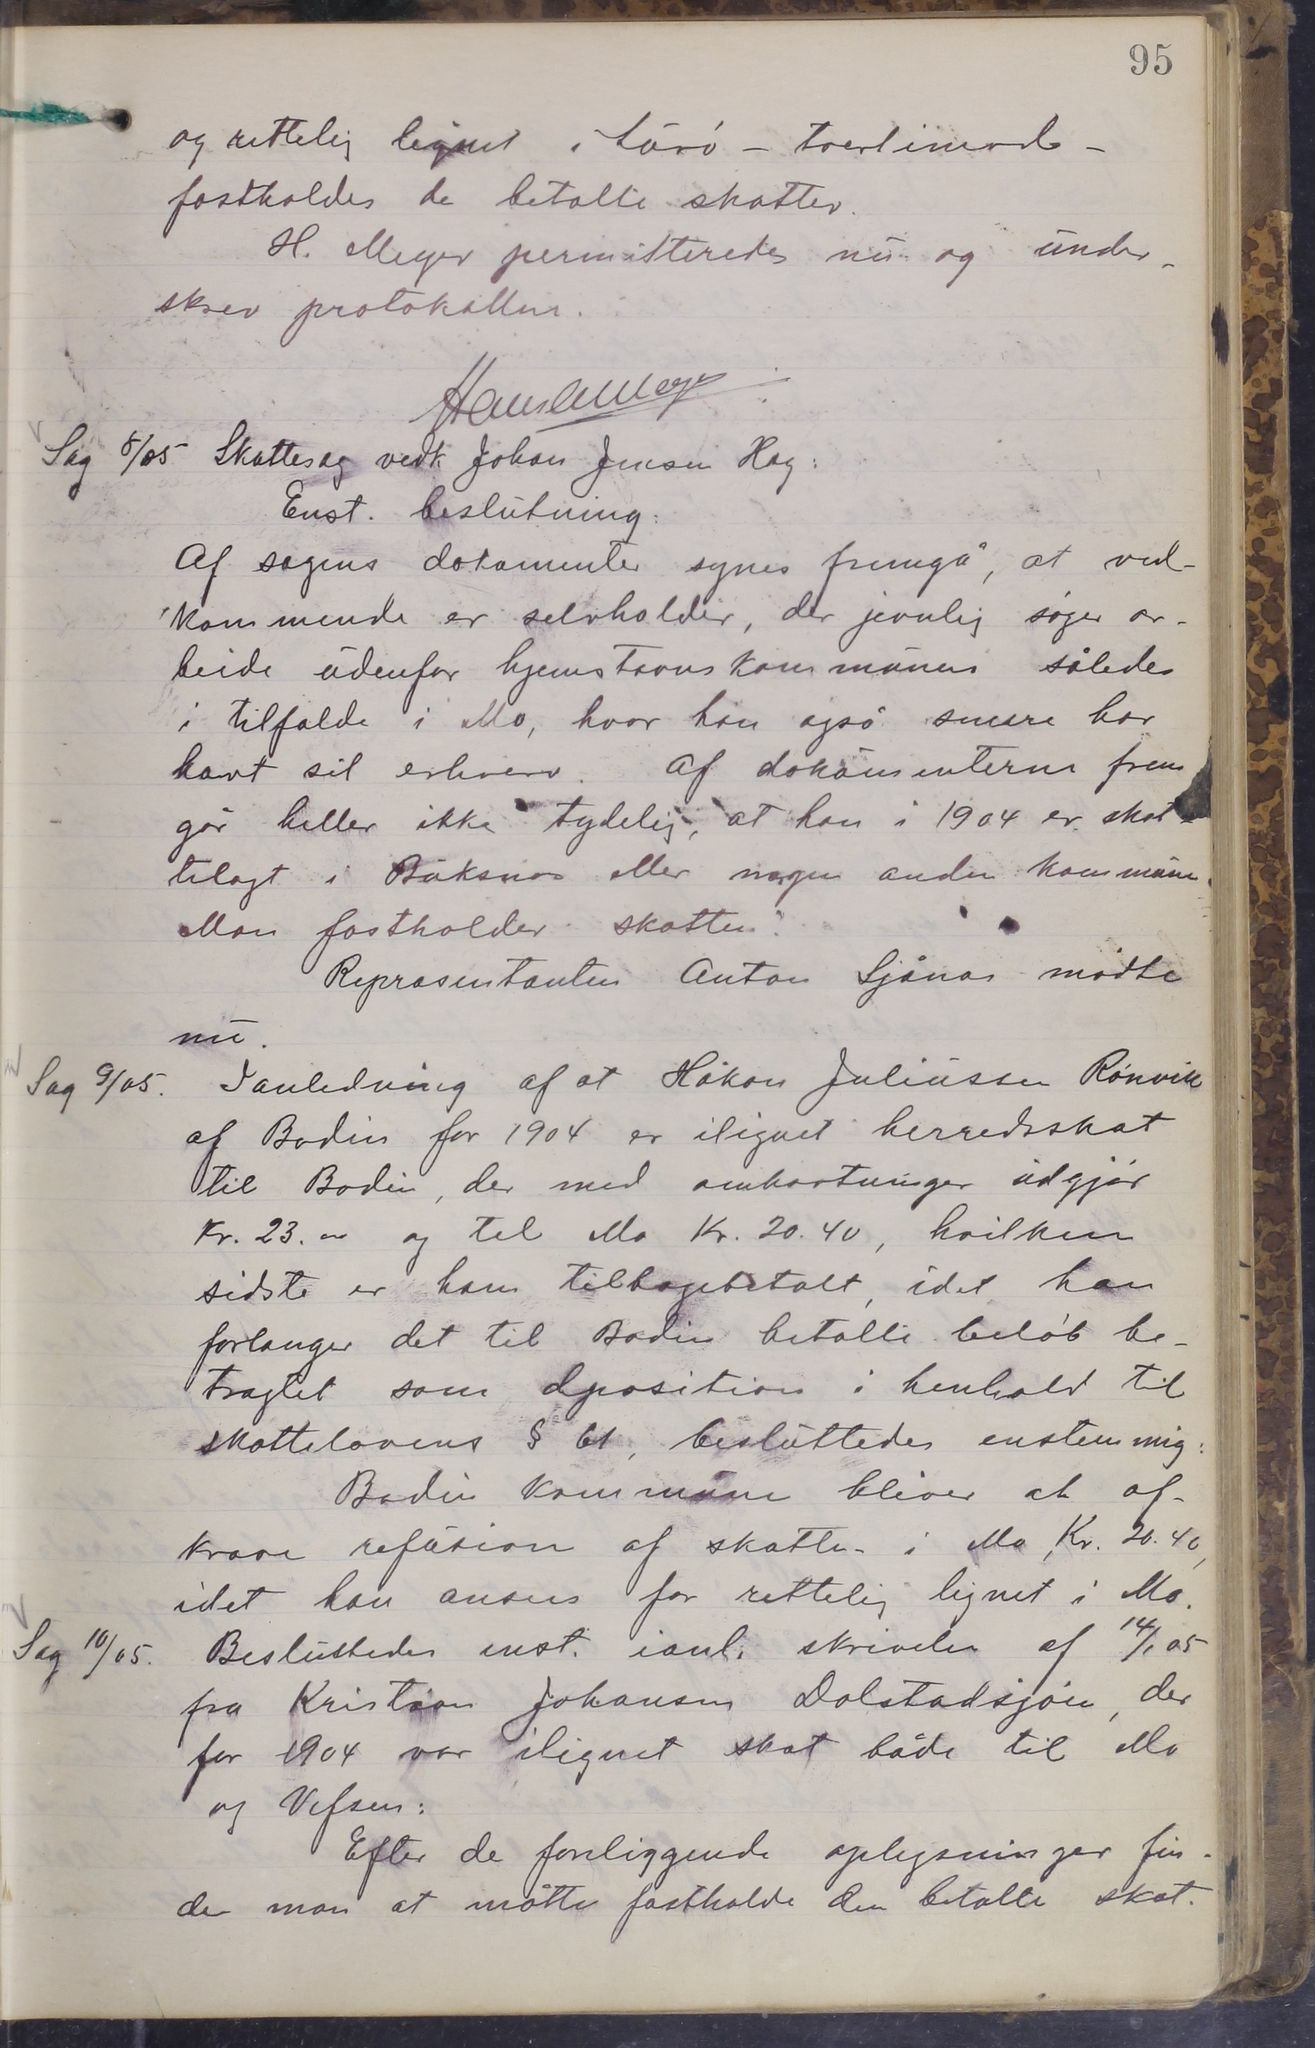 95
og rettelig lignet i Lurö - tvertimod -
fastholdes de betalte skatter.
H. Meyer permitteredes nu og under-
skrev protokollen.
Hans A Meyer
Sag 8/05 Skattesag vedk Johan Jensen Hag:
Enst. beslutning:
Af sagens dokumenter synes fremgå, at ved-
kommende er selvholder, der jevnlig søger ar-
beide udenfor hjemstavnskommunen således
i tilfælde i Mo, hvor han også senere har
havt sit erhverv. Af dokumenterne frem
går heller ikke tydelig, at han i 1904 er skat-
telagt i Buksnæs eller nogen anden kommune.
Man fastholder skatten.
Repræsentanten Anton Sjånæs mødte
nu.
Sag 9/05. I anledning af at Håkon Juliussen Rönvik
af Bodin for 1904 er ilignet herredsskat
til Bodin, der med omkostninger udgjør
Kr. 23.00 og til Mo Kr. 20.40, hvilken
sidste er ham tilbagebetalt, idet han
forlanger det til Bodin betalte beløb be-
tragtet som deposition i henhold til
skattelovens § 61, besluttedes enstemmig:
Bodin kommune bliver at af-
kræve refusion af skatten i Mo, Kr. 20.40,
idet han ansees for rettelig lignet i Mo.
Sag 10/05. Besluttedes enst. ianl. skrivelse af 14/1 05
fra Kristian Johansen Dolstadsjøen, der
for 1904 var ilignet skat både til Mo
og Vefsen:
Efter de foreliggende oplysninger fin-
der man at måtte fastholde den betalte skat.